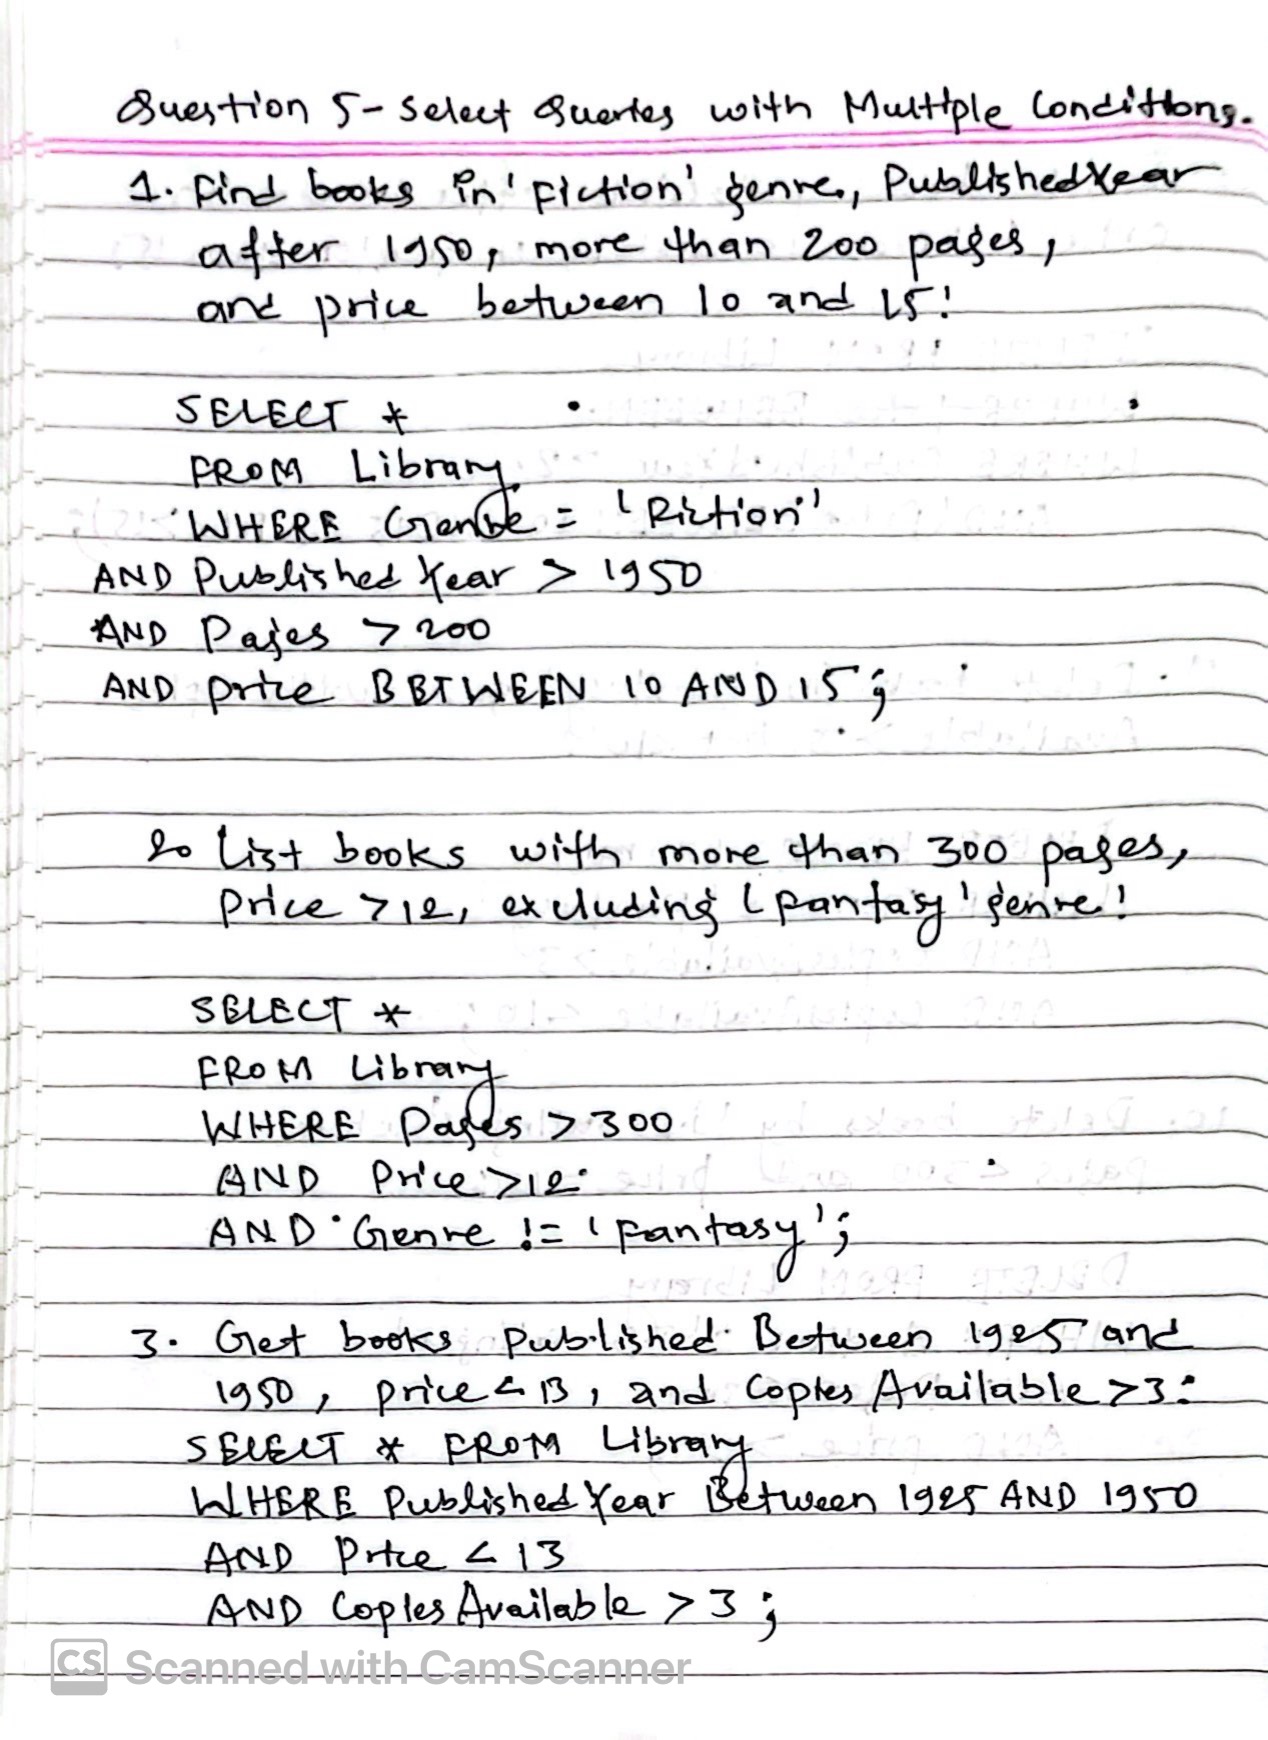 Question 5- Select Queries with Multiple Conditions.
1. Find books in 'Fiction' genre, PublishedYear
after 1950, more than 200 pages,
and price between 10 and 15:
SELECT *
FROM Library
WHERE Genre = 'Fiction'
AND PublishedYear > 1950
AND Pages > 200
AND price BETWEEN 10 AND 15;
2. List books with more than 300 pages,
Price >12, excluding 'Fantasy' genre:
SELECT *
FROM Library
WHERE Pages > 300
AND Price >12
AND Genre != 'Fantasy';
3. Get books Published Between 1925 and
1950, price < 13, and Copies Available >3:
SELECT * FROM Library
WHERE PublishedYear Between 1925 AND 1950
AND Price < 13
AND Copies Available > 3;
CS Scanned with CamScanner